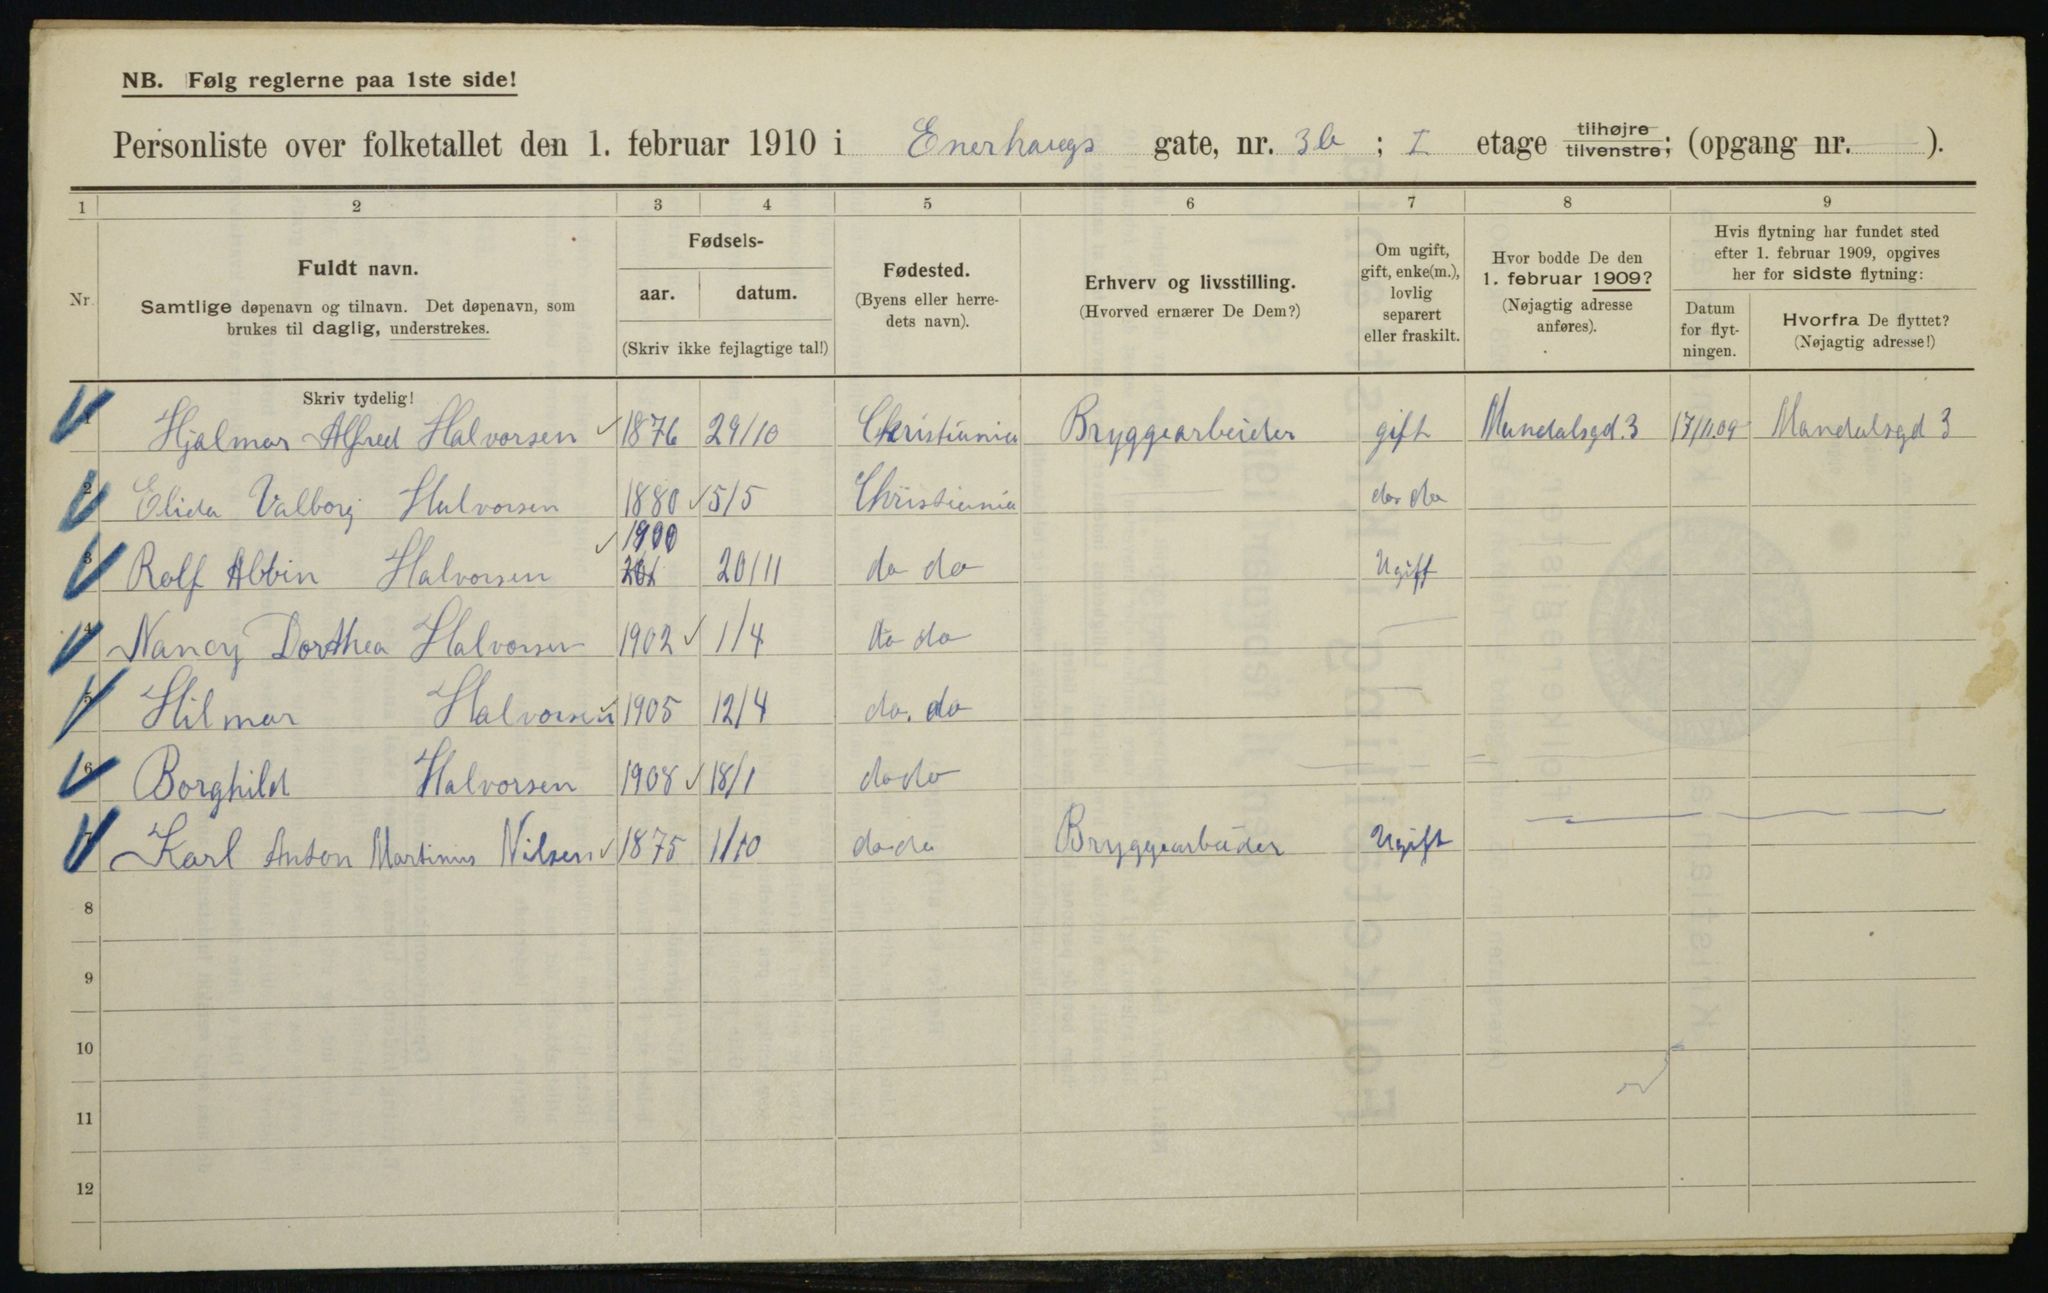 NB. Følg reglerne paa 1ste side!
Personliste over folketallet den 1. februar 1910 i Enerhaugs gate, nr. 3b; I etage tilhøjre tilvenstre; (opgang nr. ).
1 2 3 4 5 6 7 8 9
Nr.
Fuldt navn.
Samtlige døpenavn og tilnavn. Det døpenavn, som
brukes til daglig, understrekes.
Skriv tydelig!
Fødsels-
aar. datum.
(Skriv ikke fejlagtige tal!)
Fødested.
(Byens eller herre-
dets navn).
Erhverv og livsstilling.
(Hvorved ernærer De Dem?)
Om ugift,
gift, enke(m.),
lovlig
separert
eller fraskilt.
Hvor bodde De den
1. februar 1909?
(Nøjagtig adresse
anføres).
Hvis flytning har fundet sted
efter 1. februar 1909, opgives
her for sidste flytning:
Datum
for flyt-
ningen.
Hvorfra De flyttet?
(Nøjagtig adresse!)
1 Hjalmar Alfred Halvorsen 1876 29/10 Christiania Bryggearbeider gift Mandalsgd. 3 17/11.09 Mandalsgd 3
2 Elida Valborg Halvorsen 1880 5/5 Christiania do do
1900
3 Rolf Abbin Halvorsen 20/11 do do Ugift
4 Nancy Dorthea Halvorsen 1902 1/4 do do
5 Hilmar Halvorsen 1905 12/4 do. do
6 Borghild Halvorsen 1908 18/1 do do
7 Karl Anton Martinius Nilsen 1875 1/10 do do Bryggearbeider Ugift
8
9
10
11
12